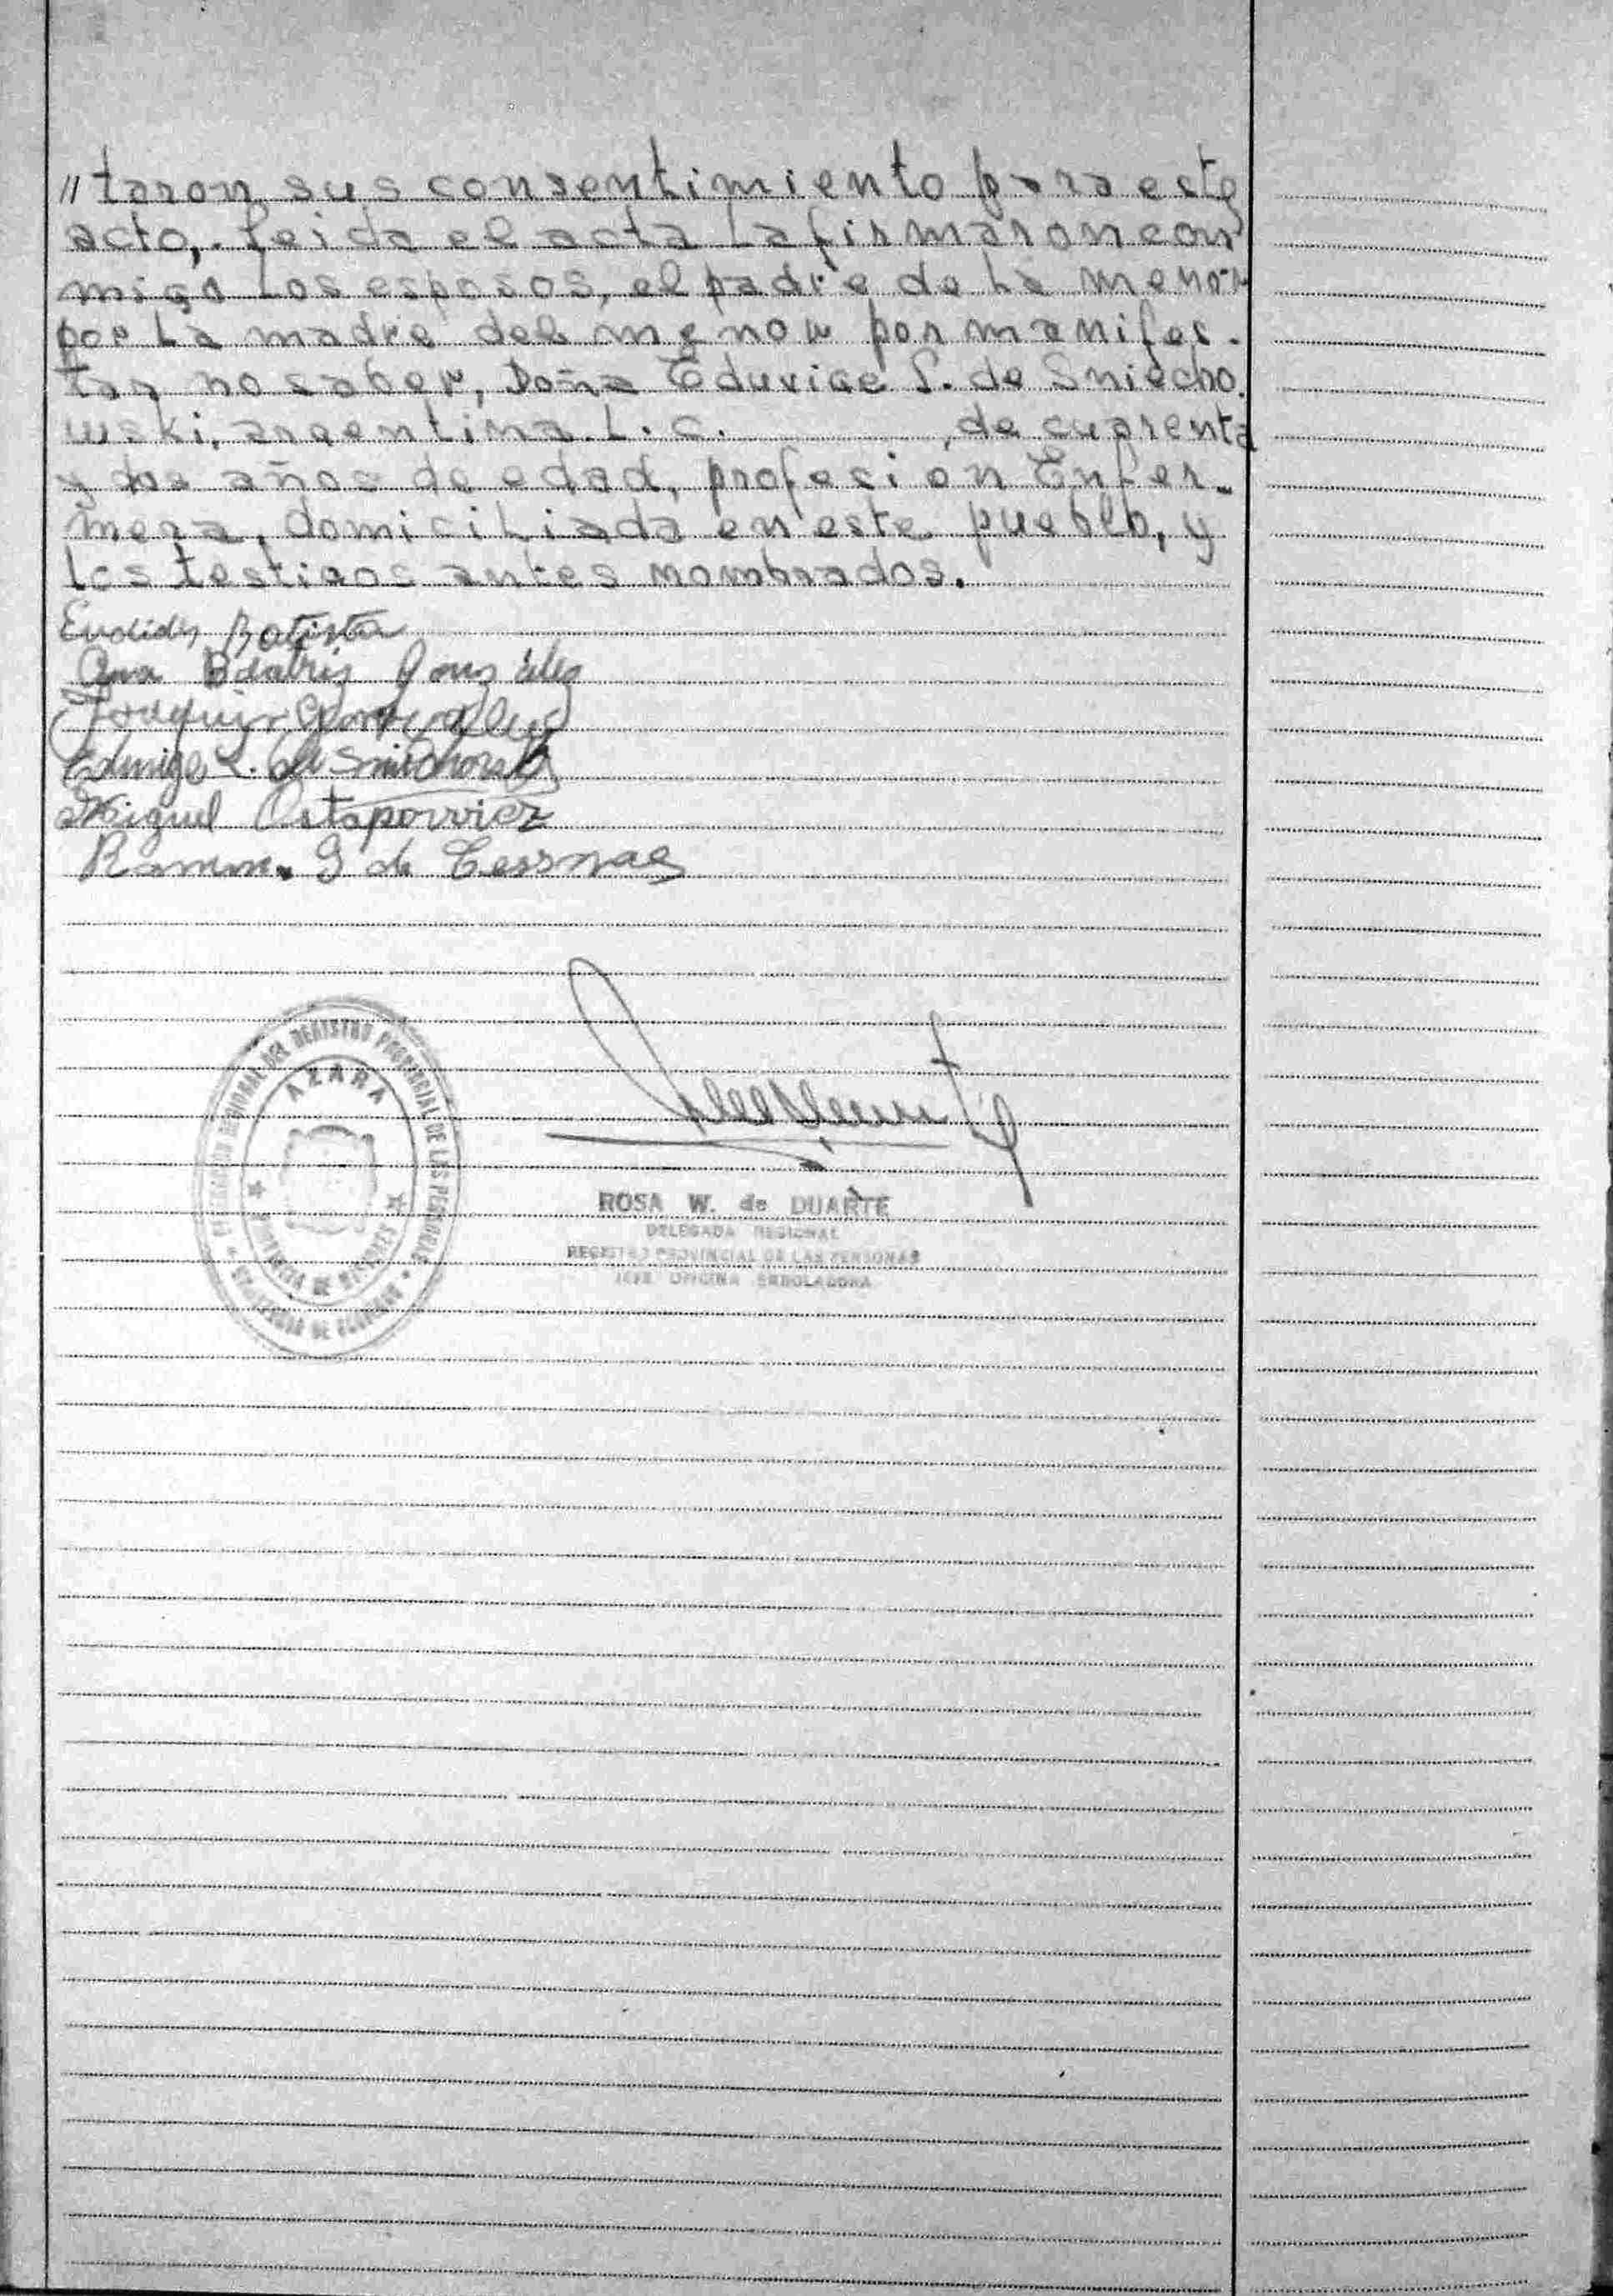 // taron sus consentimiento para este
acto, leida el acta la firmaron con
migo los esposos, el padre de la menor
por la madre del menor por manifes-
tar no saber, Doña Eduvige S. de Sniecho
wski, argentina L. C. , de cuarenta
y dos años de edad, profesión Enfer-
mera, domiciliada en este pueblo, y
los testigos antes nombrados.
Euclides Batista
Ana Beatriz González
Joaquin Gonzalez
Eduvige S. de Sniechowski
Miguel Ostapowicz
Ramona G de
DEL REGISTRO PROVINCIAL DE LAS PERSONAS
AZARA
PROVINCIA DE MISIONES
ROSA W. de DUARTE
DELEGADA REGIONAL
REGISTRO PROVINCIAL DE LAS PERSONAS
JEFE OFICINA ENROLADORA